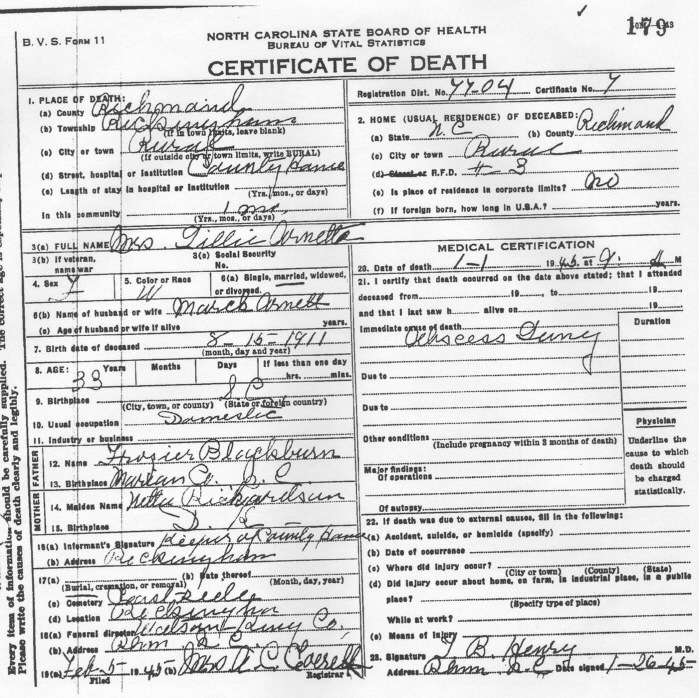 B. V. S. FORM 11
NORTH CAROLINA STATE BOARD OF HEALTH
BUREAU OF VITAL STATISTICS
CERTIFICATE OF DEATH
179
Registration Dist. No. 77-04 Certificate No. 7
1. PLACE OF DEATH:
(a) County Richmond
(b) Township Rockingham
(If in town limits, leave blank)
(c) City or town Rural
(If outside city or town limits, write RURAL)
(d) Street, hospital or institution County Home
(e) Length of stay in hospital or institution
(Yrs., mos., or days)
In this community 1 mo.
(Yrs., mos., or days)
2. HOME (USUAL RESIDENCE) OF DECEASED:
(a) State N.C (b) County Richmond
(c) City or town Rural
(d) Street or R.F.D. # 3
(e) Is place of residence in corporate limits? no
(f) If foreign born, how long in U.S.A.? years.
3(a) FULL NAME Mrs. Tillie Arnette
3(b) If veteran, name war
3(c) Social Security No.
4. Sex F
5. Color or Race W
6(a) Single, married, widowed, or divorced.
6(b) Name of husband or wife March Arnett
(c) Age of husband or wife if alive years.
7. Birth date of deceased 8-15-1911
(month, day and year)
8. AGE: Years 33 Months Days If less than one day hrs. mins.
9. Birthplace S. C.
(City, town, or county) (State or foreign country)
10. Usual occupation Domestic
11. Industry or business
FATHER
12. Name Frozier Blackburn
13. Birthplace Marion Co. S. C.
MOTHER
14. Maiden Name Richardson
15. Birthplace
16(a) Informant's Signature Keeper of County Home
(b) Address Rockingham
17(a) (b) Date thereof
(Burial, cremation, or removal) (Month, day, year)
(c) Cemetery
(d) Location Rockingham
18(a) Funeral director Watson King Co,
(b) Address Rhm N C
19(a) Feb-5-1945 (b) Mrs A. C. Everett
Filed Registrar
MEDICAL CERTIFICATION
20. Date of death 1-1 1945 at 9 M
21. I certify that death occurred on the date above stated; that I attended
deceased from 19 , to 19
and that I last saw h alive on 19
Immediate cause of death Duration
Abscess Lung
Due to
Due to
Other conditions
(Include pregnancy within 3 months of death)
Major findings:
Of operations
Of autopsy
Physician
Underline the cause to which death should be charged statistically.
22. If death was due to external causes, fill in the following:
(a) Accident, suicide, or homicide (specify)
(b) Date of occurrence
(c) Where did injury occur?
(City or town) (County) (State)
(d) Did injury occur about home, on farm, in industrial place, in a public
place?
(Specify type of place)
While at work?
(e) Means of injury
23. Signature B. Henry M.D.
Address Rhm N. C. Date signed 1-26-45
Every item of information should be carefully supplied. The correct age is
Please write the causes of death clearly and legibly.